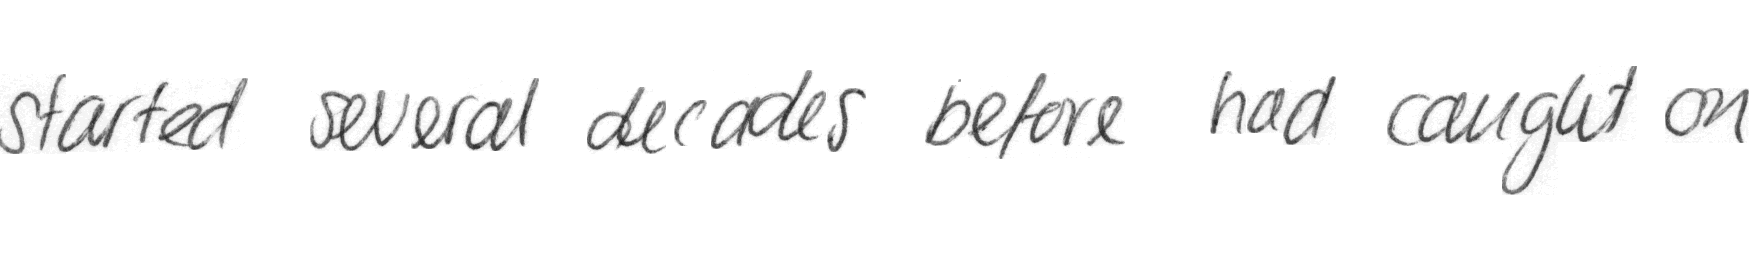 started several decades before had caught on